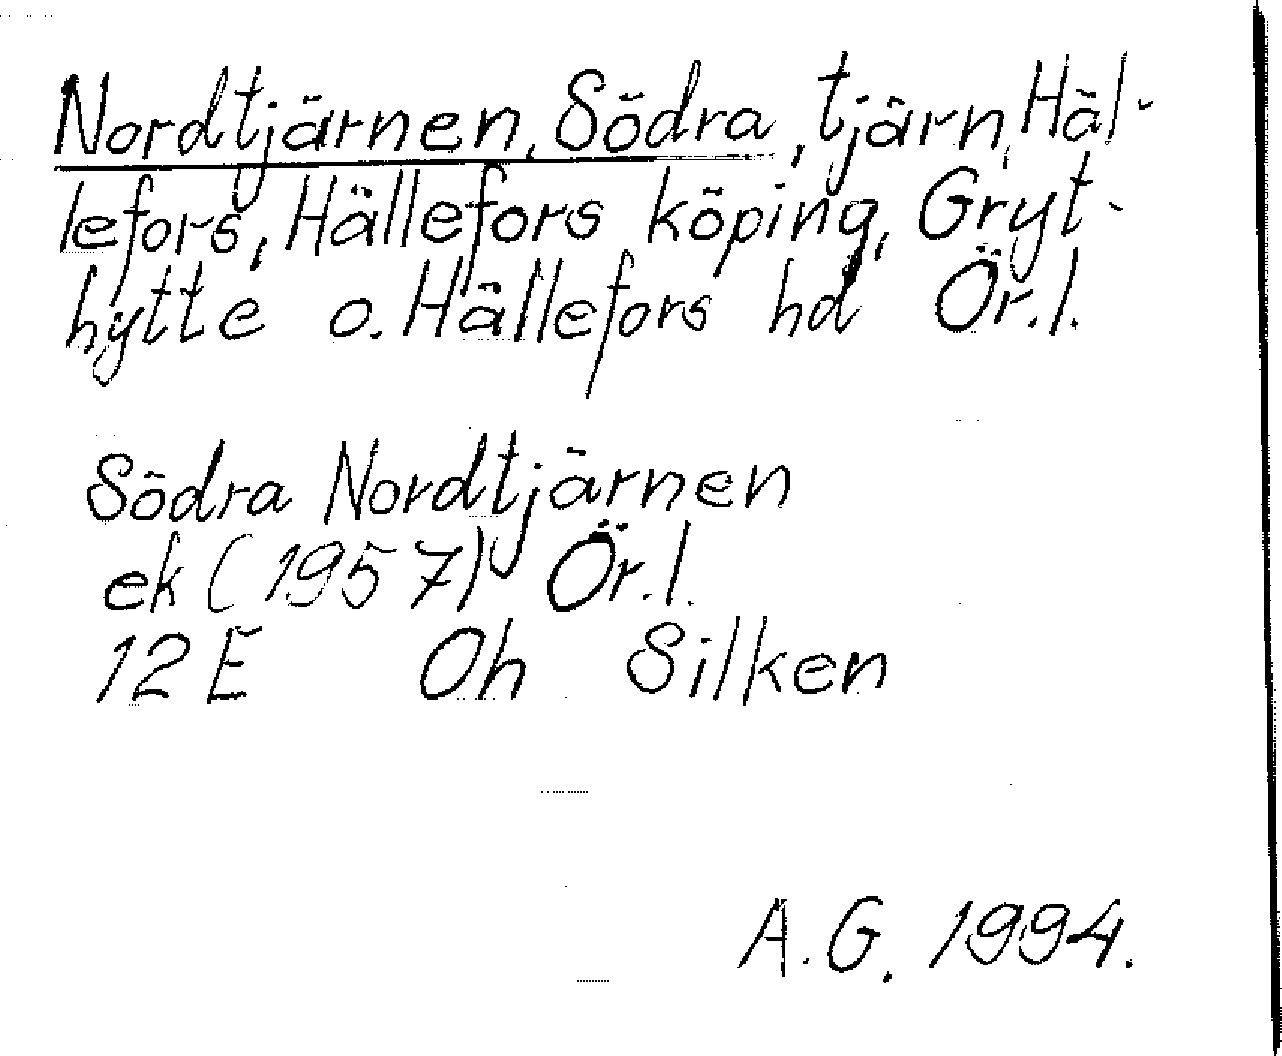 Nordtjärnen, Södra, tjärn, Häl-
lefors, Hällefors köping, Gryt-
hytte o. Hällefors hd Ör.l.
Södra Nordtjärnen
ek (1957) Ör.l.
12E Oh Silken
A.G. 1994.